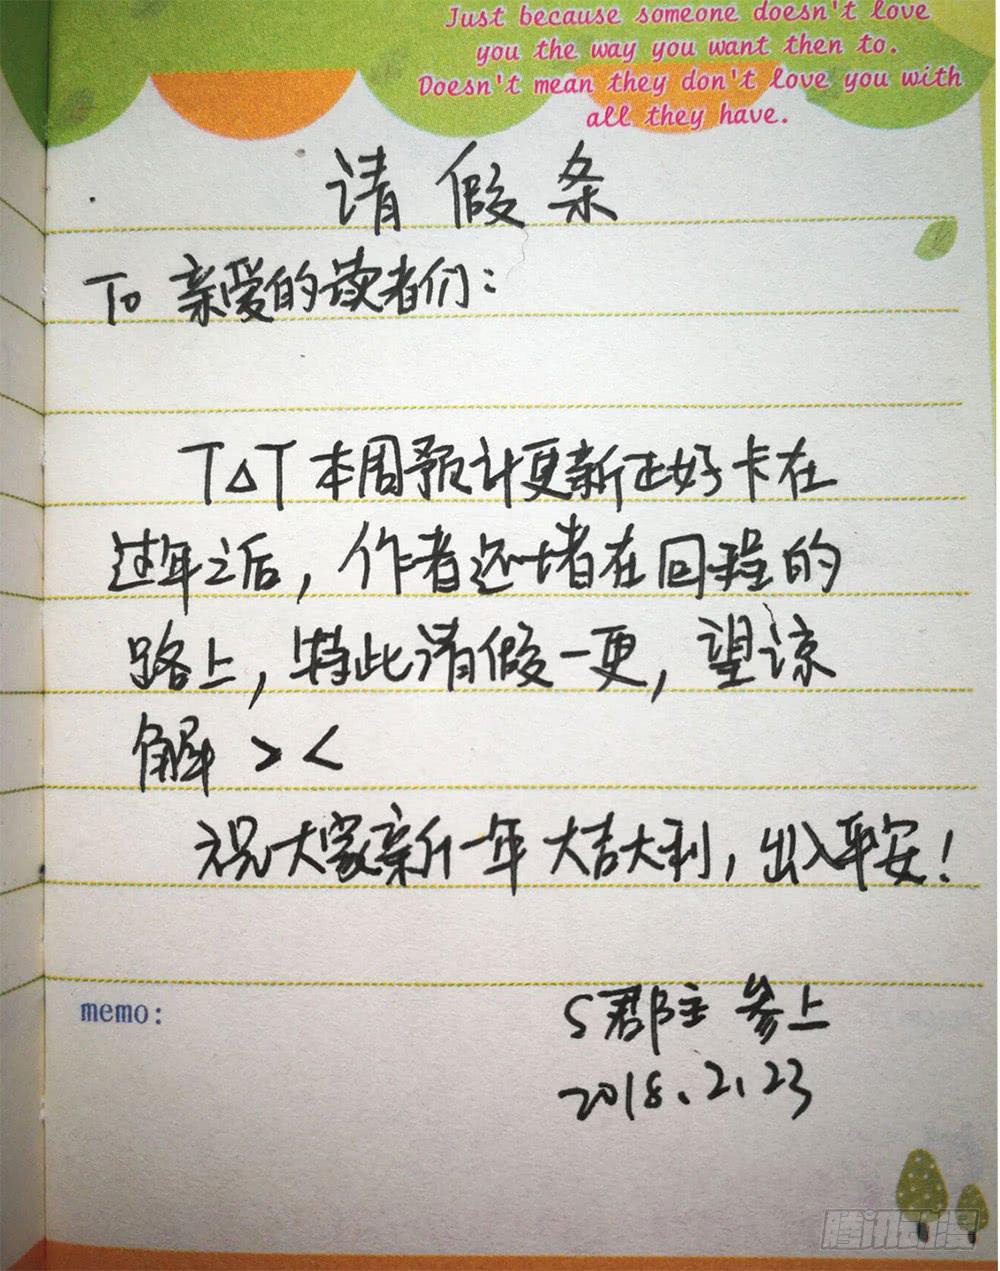 Just because someone doesn't love
you the way you want then to.
Doesn't mean they don't love you with
all they have.
请假条
To 亲爱的读者们：
T△T 本周预计更新正好卡在
过年之后，作者还堵在回程的
路上，特此请假一更，望谅
解 > <
祝大家新一年 大吉大利，出入平安！
memo:
S郡主 参上
2018.2.23
腾讯动漫